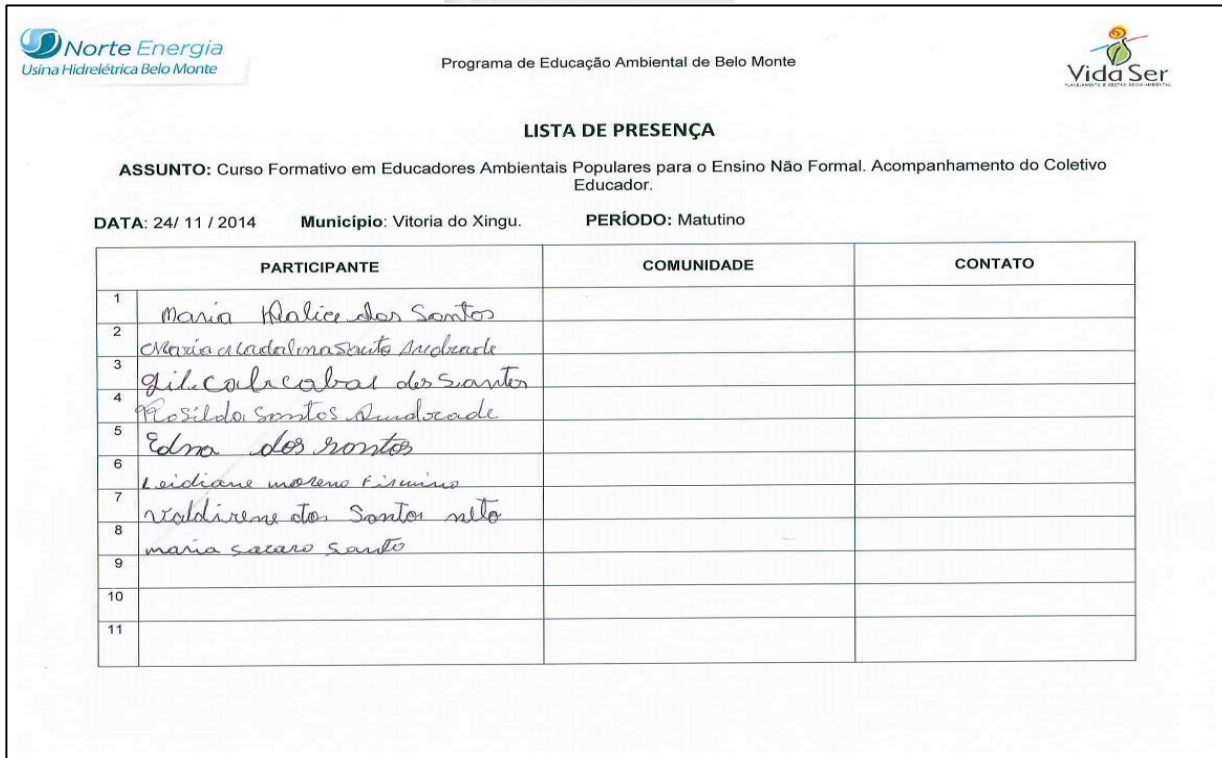 Norte Energia
Usina Hidrelétrica Belo Monte
Programa de Educação Ambiental de Belo Monte
Vida Ser
LISTA DE PRESENÇA
ASSUNTO: Curso Formativo em Educadores Ambientais Populares para o Ensino Não Formal. Acompanhamento do Coletivo
Educador.
DATA: 24/ 11 / 2014 Município: Vitoria do Xingu. PERÍODO: Matutino
PARTICIPANTE COMUNIDADE CONTATO
1 Maria dos Santos
2 Maria Madalina Andrade
3 dos Santos
4 Rosilda Santos Andrade
5 Edna dos
6 Leidiane moreno Firmino
7 Valdirene dos Santos neto
8 maria santo
9
10
11